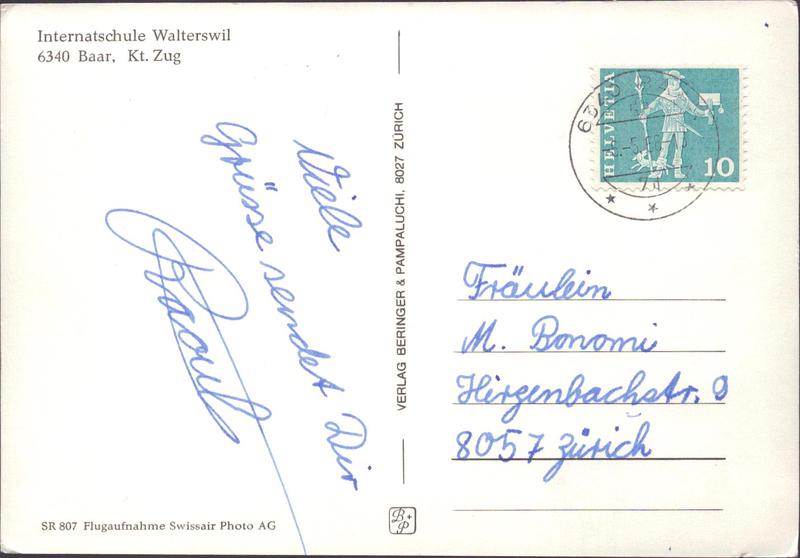 Internatschule Walterswil
6340 Baar, Kt. Zug
Viele
Grüsse sendet Dir
Raoul
VERLAG BERINGER & PAMPALUCHI, 8027 ZÜRICH
HELVETIA
10
6340
Fräulein
M. Bonomi
Hirzenbachstr. 9
8057 Zürich
SR 807 Flugaufnahme Swissair Photo AG
B+P